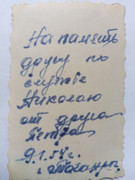 На память
другу по
службе
Николаю
от друга
Петра
9.1.54г.
г. Таганрог